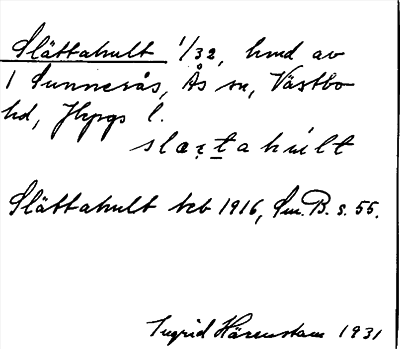 Slättahult 1/32, hmd av
1 Sunneråås, Ås sn, Västbo
hd, Jkpgs l.
slæṭtahúlt
Slättahult kb 1916, Sm.B. s. 55.
Ingrid Härenstam 1931